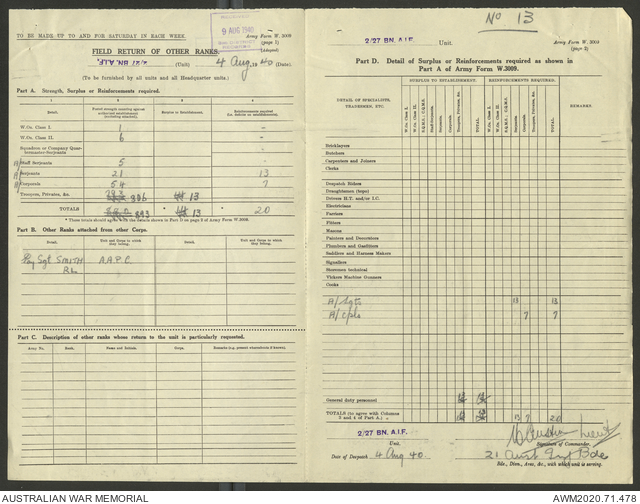 TO BE MADE UP TO AND FOR SATURDAY IN EACH WEEK.
9 AUG 1940
Army Form W. 3009
(page 1)
(Adapted)
FIELD RETURN OF OTHER RANKS.
2/27 BN. A.I.F. (Unit) 4 Aug, 1940 (Date)
(To be furnished by all units and all Headquarter units.)
Part A. Strength, Surplus or Reinforcements required.
1 2 3 4
Detail.
W.Os. Class I. 1 -
W.Os. Class II. 6 -
Squadron or Company Quartermaster-Serjeants -
Staff Serjeants 5 -
Serjeants 21 13
Corporals 54 7
Troopers, Privates, &c. 306 13
TOTALS 393 * 13 * 20
* These totals should agree with the details shown in Part D on page 2 of Army Form W.3009.
Part B. Other Ranks attached from other Corps.
Detail. Unit and Corps to which they belong. Detail. Unit and Corps to which they belong.
Pay Sgt SMITH A.A.P.C.
R.L.
Part C. Description of other ranks whose return to the unit is particularly requested.
Army No. Rank. Name and Initials. Corps. Remarks (e.g. present whereabouts if known).
No 13
2/27 BN. A.I.F. Unit. Army Form W. 3009
(page 2)
Part D. Detail of Surplus or Reinforcements required as shown in
Part A of Army Form W.3009.
DETAIL OF SPECIALISTS, TRADESMEN, ETC.
SURPLUS TO ESTABLISHMENT. REINFORCEMENTS REQUIRED. REMARKS.
W.Os. Class I. W.Os. Class II. S.Q.M.S., C.Q.M.S. Staff-Serjeants. Serjeants. Corporals. Troopers, Privates, &c. TOTAL.
W.Os. Class I. W.Os. Class II. S.Q.M.S., C.Q.M.S. Serjeants. Corporals. TOTAL.
Bricklayers
Butchers
Carpenters and Joiners
Clerks
Despatch Riders
Draughtsmen (topo)
Drivers H.T. and/or I.C.
Electricians
Farriers
Fitters
Masons
Painters and Decorators
Plumbers and Gasfitters
Saddlers and Harness Makers
Signallers
Storemen technical
Vickers Machine Gunners
Cooks
A/Sgts 13 13
A/Cpls 7 7
General duty personnel
TOTALS (to agree with Columns 3 and 4 of Part A.) 13 7 20
2/27 BN. A.I.F.
Unit. Signature of Commander.
Date of Despatch 4 Aug 40. 21 Aust Inf Bde
Bde., Divn., Area, &c., with which unit is serving.
AUSTRALIAN WAR MEMORIAL AWM2020.71.478